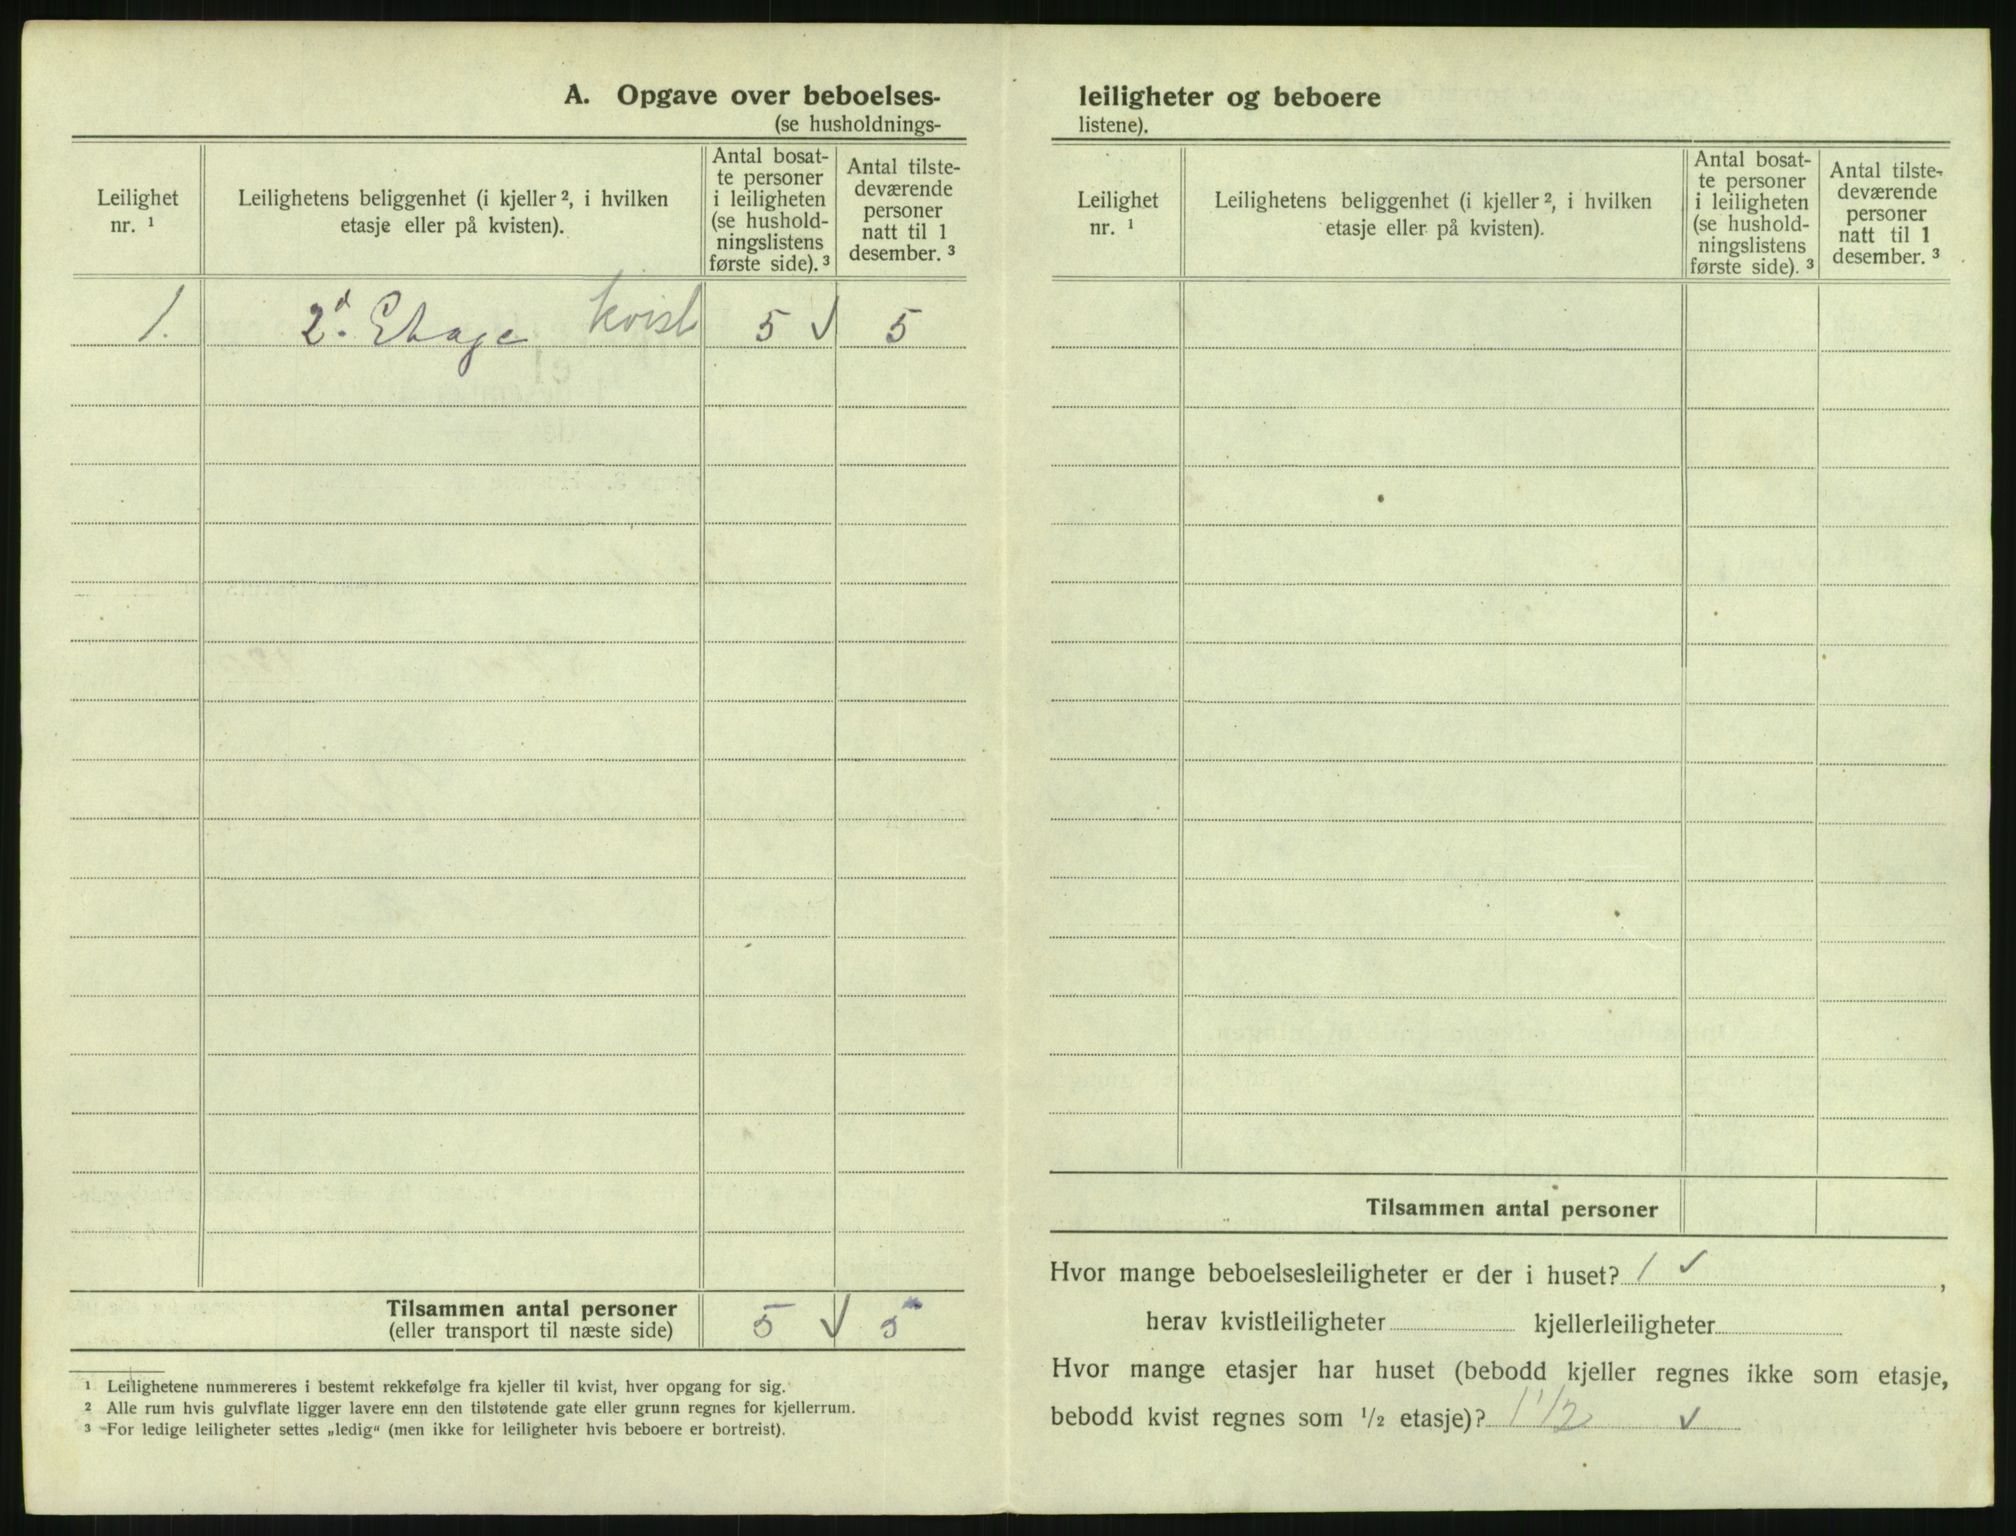 A. Opgave over beboelses-
(se husholdnings-
Leilighet
nr. ¹
Leilighetens beliggenhet (i kjeller ², i hvilken
etasje eller på kvisten).
Antal bosat-
te personer
i leiligheten
(se hushold-
ningslistens
første side). ³
Antal tilste-
deværende
personer
natt til 1
desember. ³
1. 2d. Etage kvist 5 ✓ 5
Tilsammen antal personer
(eller transport til næste side)
5 ✓ 5
¹ Leilighetene nummereres i bestemt rekkefølge fra kjeller til kvist, hver opgang for sig.
² Alle rum hvis gulvflate ligger lavere enn den tilstøtende gate eller grunn regnes for kjellerrum.
³ For ledige leiligheter settes „ledig“ (men ikke for leiligheter hvis beboere er bortreist).
leiligheter og beboere
listene).
Leilighet
nr. ¹
Leilighetens beliggenhet (i kjeller ², i hvilken
etasje eller på kvisten).
Antal bosat-
te personer
i leiligheten
(se hushold-
ningslistens
første side). ³
Antal tilste-
deværende
personer
natt til 1
desember. ³
Tilsammen antal personer
Hvor mange beboelsesleiligheter er der i huset? 1 ✓ ,
herav kvistleiligheter kjellerleiligheter
Hvor mange etasjer har huset (bebodd kjeller regnes ikke som etasje,
bebodd kvist regnes som ½ etasje)? 1 1/2 ✓